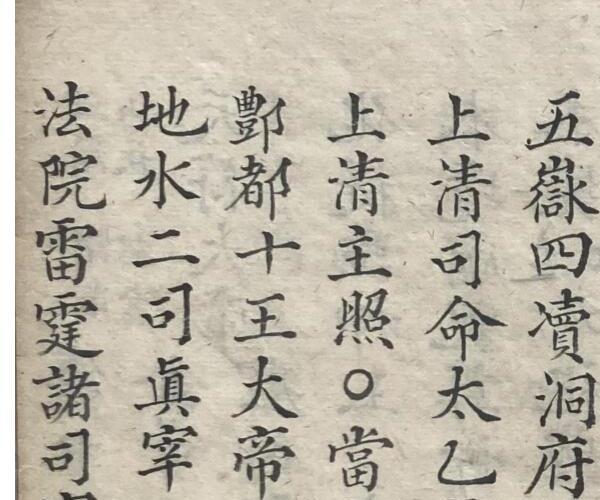 五嶽四瀆洞府
上清司命太乙
上清主照○當
酆都十王大帝
地水二司眞宰
法院雷霆諸司